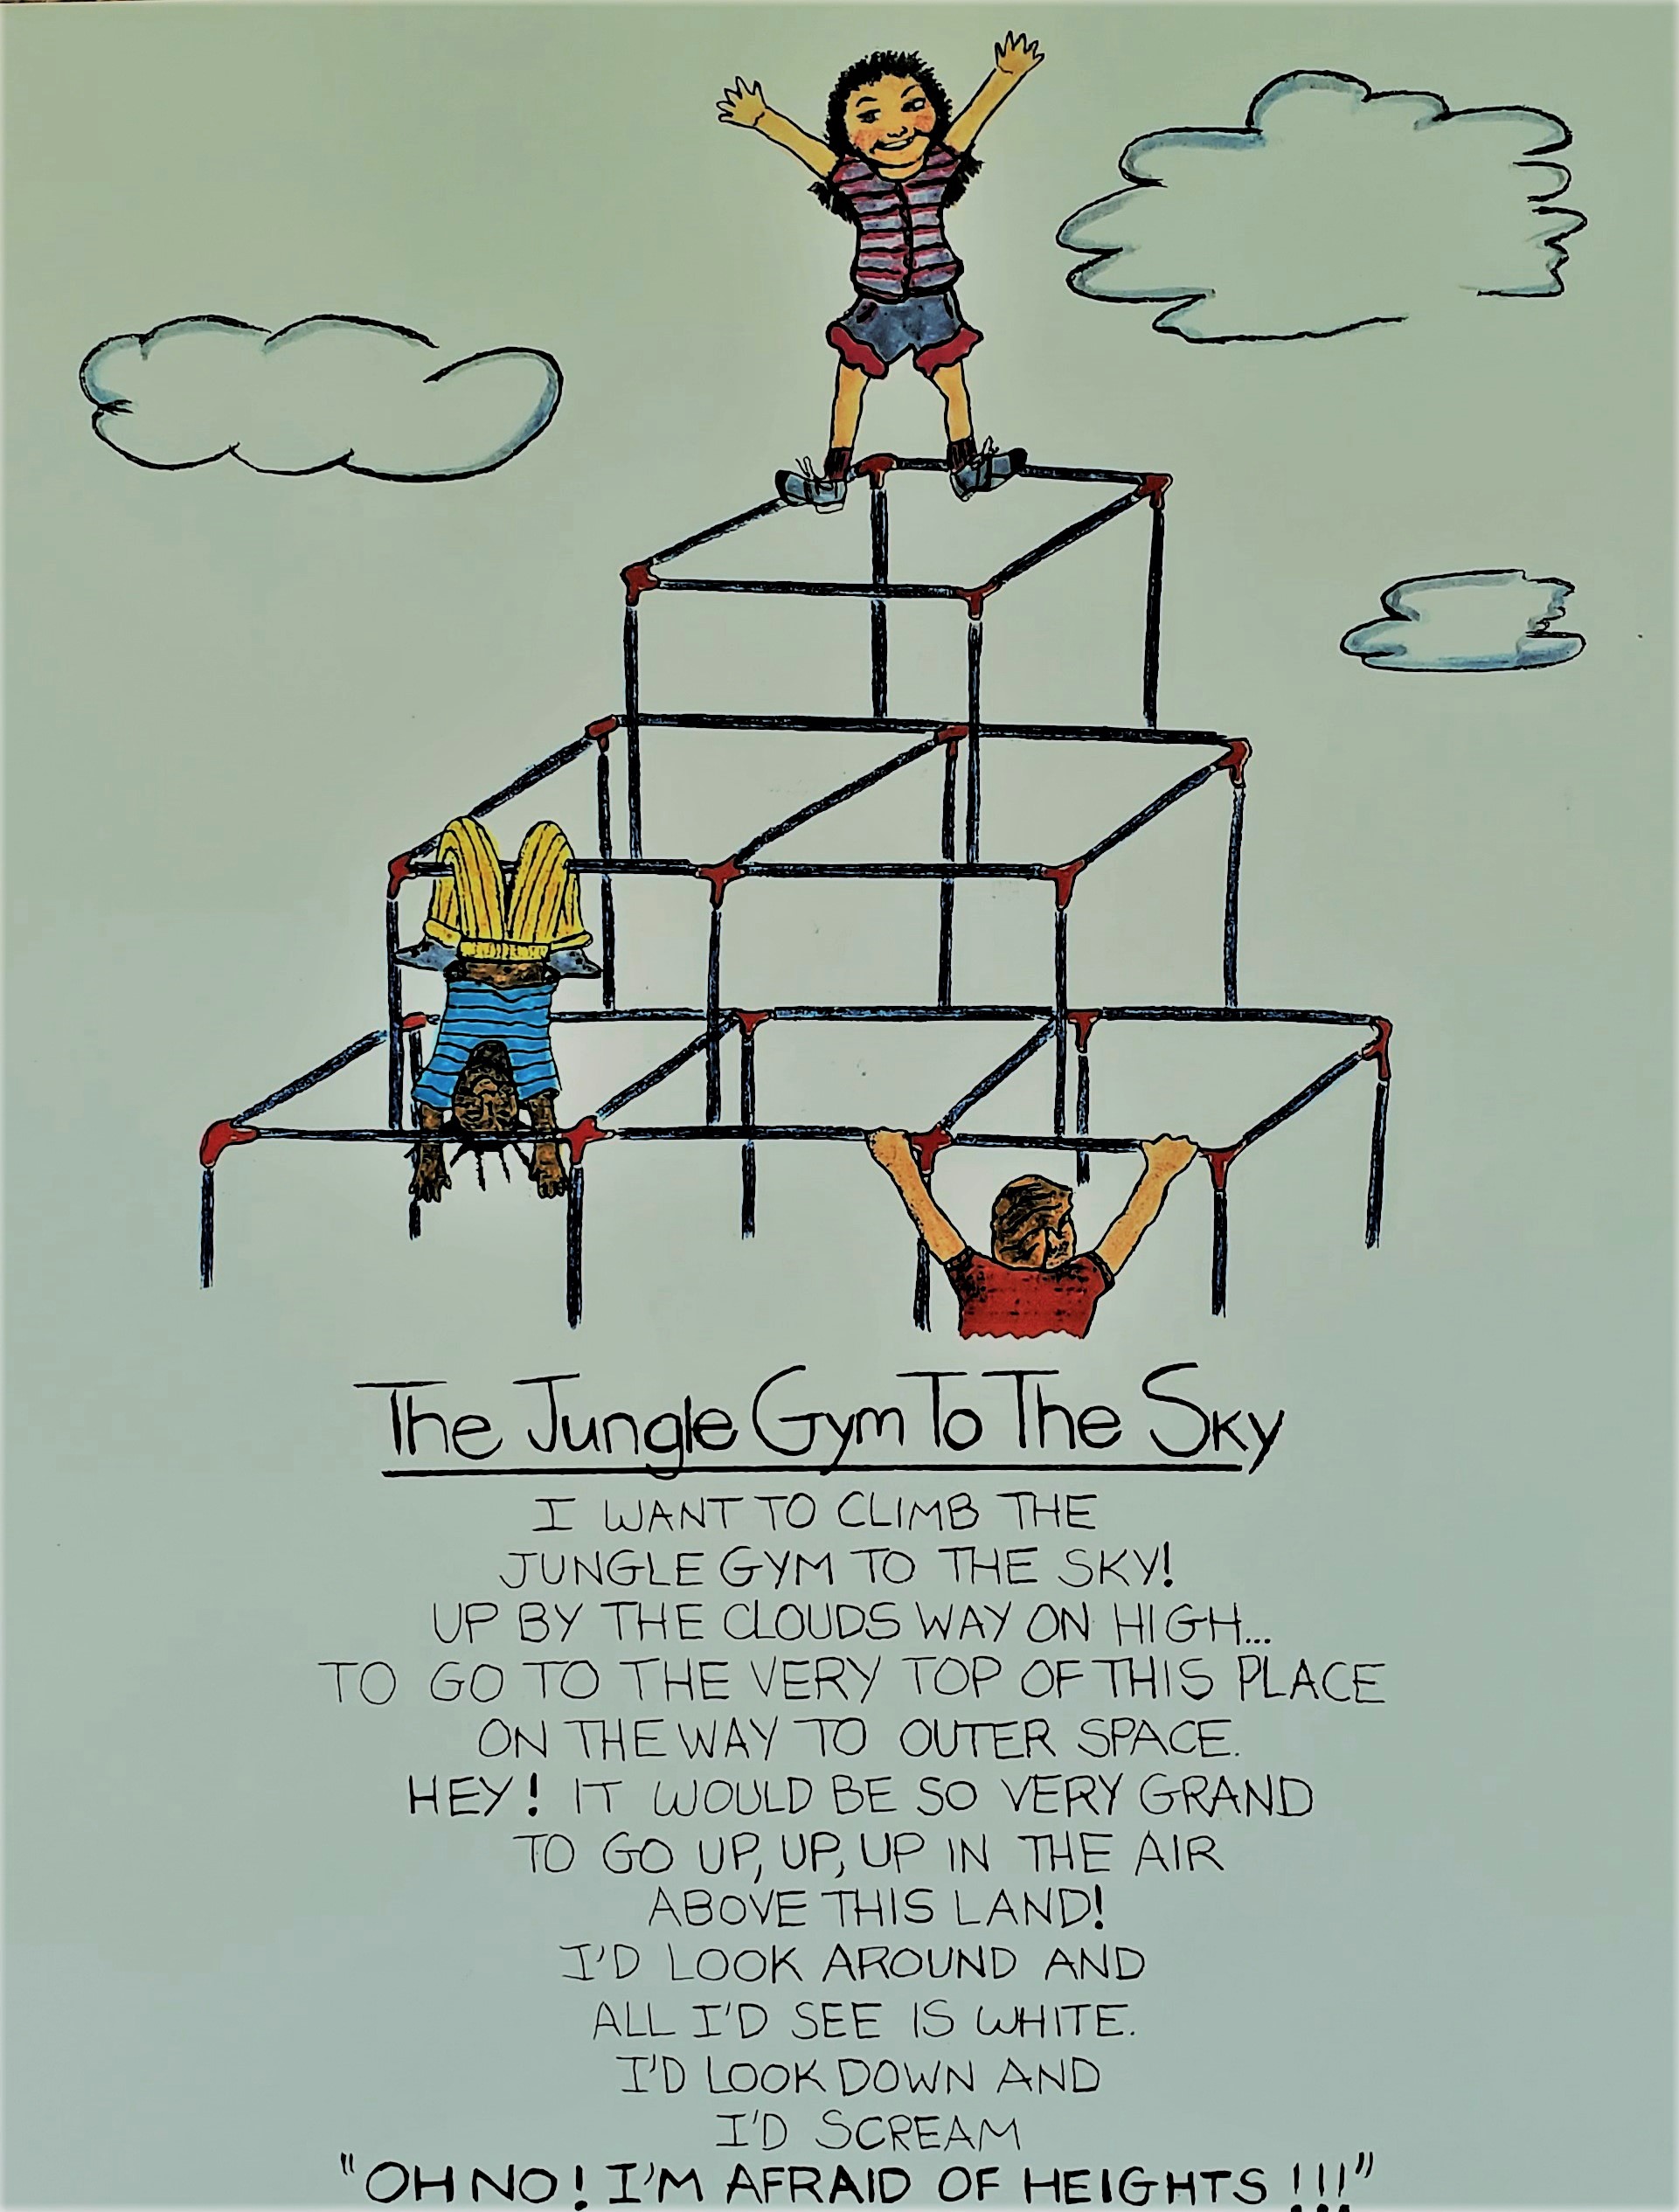 The Jungle Gym To The Sky
I WANT TO CLIMB THE
JUNGLE GYM TO THE SKY!
UP BY THE CLOUDS WAY ON HIGH...
TO GO TO THE VERY TOP OF THIS PLACE
ON THE WAY TO OUTER SPACE.
HEY! IT WOULD BE SO VERY GRAND
TO GO UP, UP, UP IN THE AIR
ABOVE THIS LAND!
I'D LOOK AROUND AND
ALL I'D SEE IS WHITE.
I'D LOOK DOWN AND
I'D SCREAM
"OH NO! I'M AFRAID OF HEIGHTS!!!"